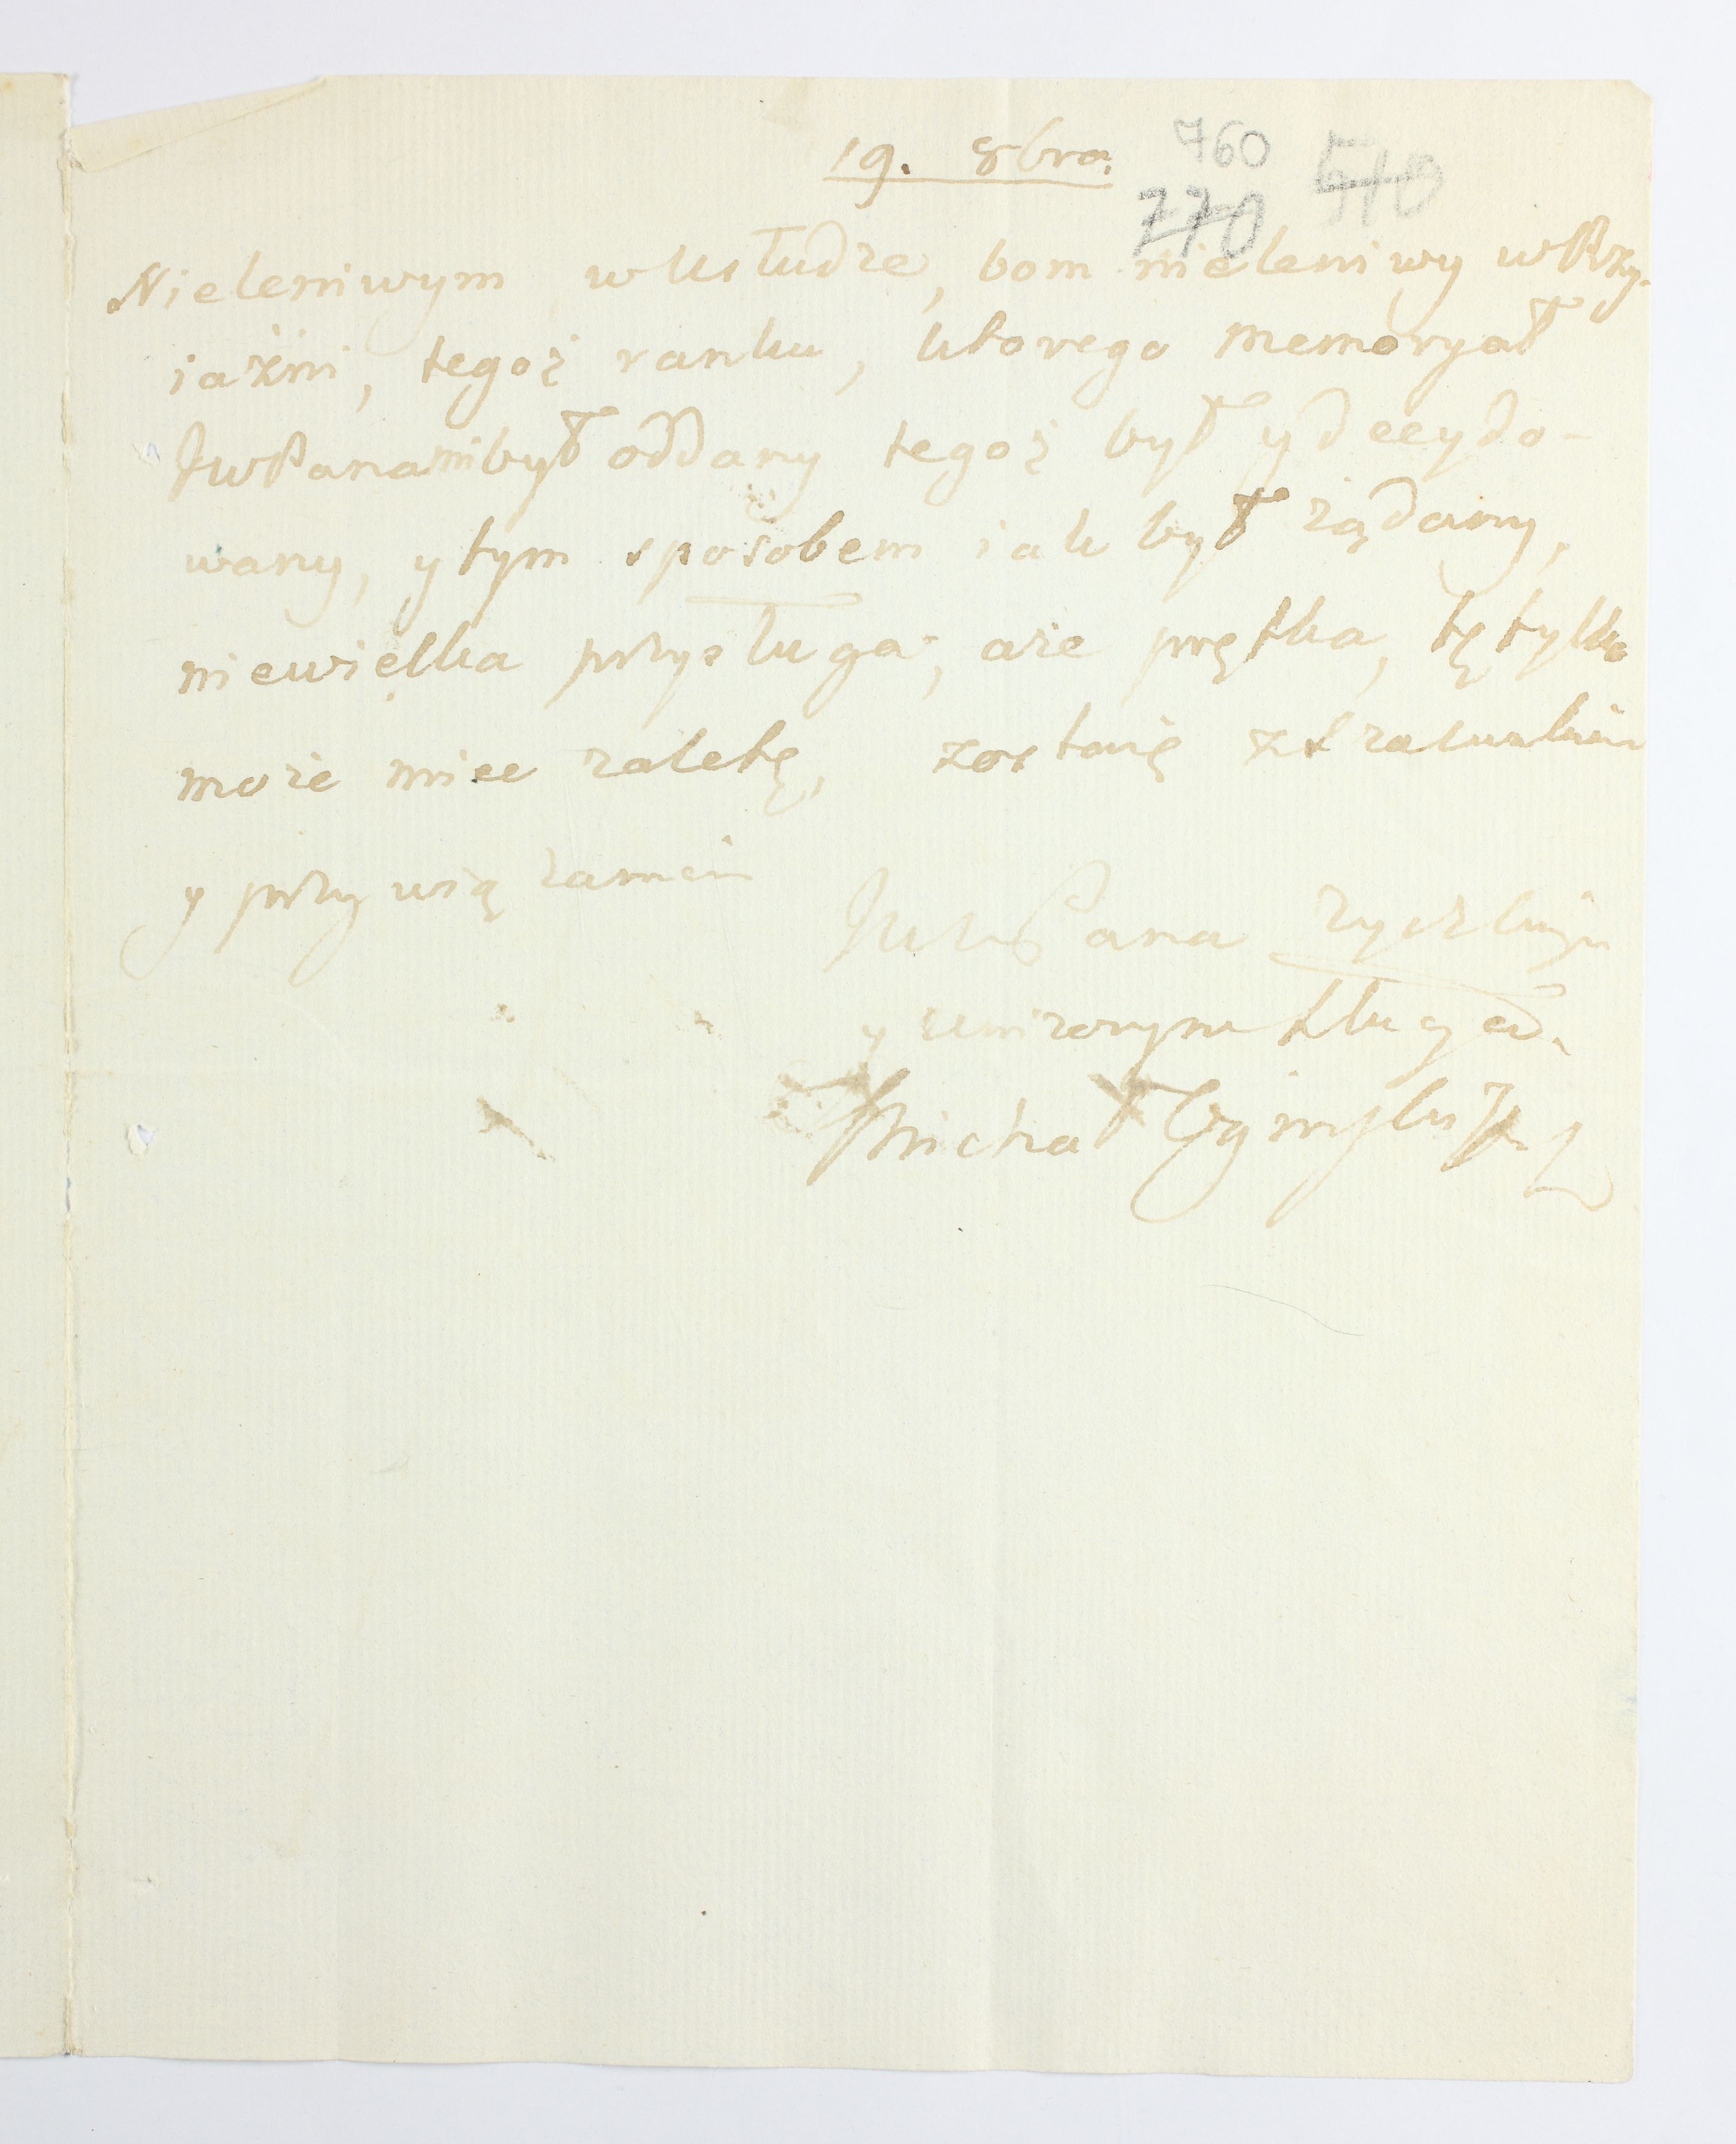 19. 8bra. 760
770 570
Nieleniwym w Usłudze, bom nieleniwy w Przy-
iaźni, tegoż ranku, ktorego memoryał
JWPana mi był oddany tegoż był y decydo-
wany, y tym sposobem iak był żądany,
niewielka przysługa, aże prętka, tę tylko
może miec zaletę, zostaię z szacunkiem
y przywiązaniem
JWPana życzliwym
y uniżonym sługą.
Michał